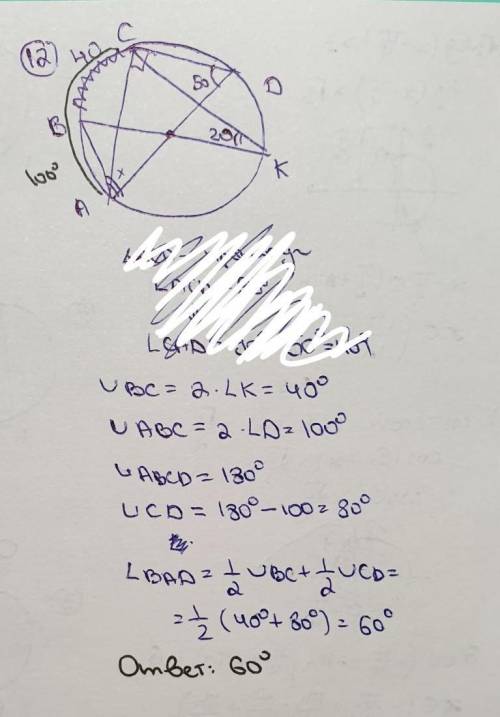 12
40
C
50
D
B
20
100°
x
K
A
∪BC = 2·∠K = 40°
∪ABC = 2·∠D = 100°
∪ABCD = 180°
∪CD = 180° - 100 = 80°
∠BAD = 1/2 ∪BC + 1/2 ∪CD =
= 1/2 (40° + 80°) = 60°
Ответ: 60°